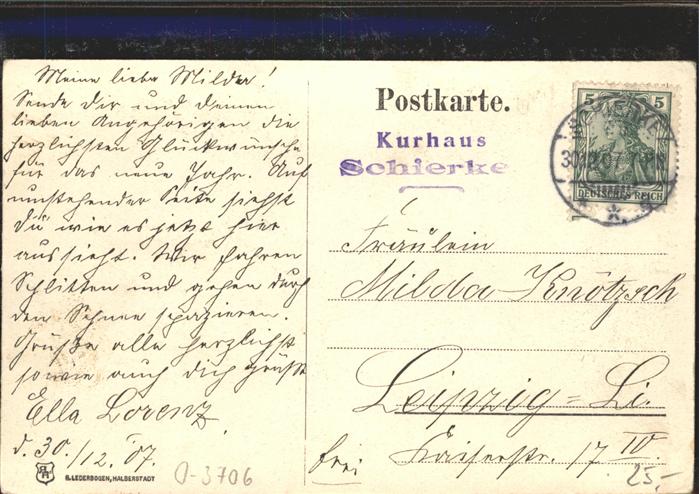 Meine liebe Milda!
Sende dir und deinen
lieben Angehörigen die
herzlichsten Glückwünsche
für das neue Jahr. Auf
umstehender Seite siehst
du wie es jetzt hier
aussieht. Wir fahren
Schlitten und gehen durch
den Schnee spazieren.
Grüße alle herzlichst
sowie auch dich grüßt
Ella Lorenz
d. 30./12. 07.
B. LEDERBOGEN, HALBERSTADT
O-3706
Postkarte.
Kurhaus
Schierke
5 5
SCHIERKE
30.12.07
DEUTSCHES REICH
Fräulein
Milda Knötzsch
Leipzig=Li.
frei Kaiserstr. 17 IV.
25,-